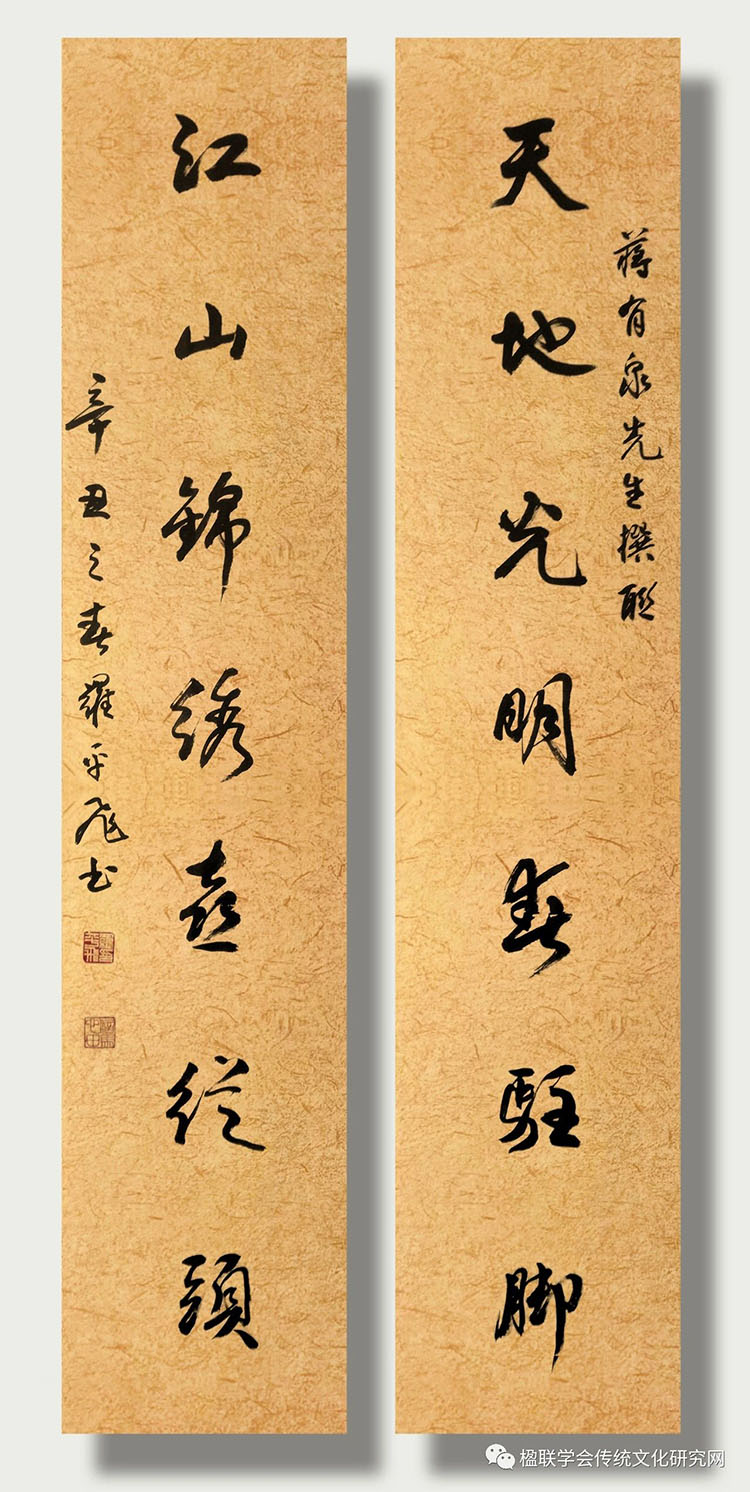 天地光明春駐脚
蔣有泉先生撰聯
江山錦綉喜從頭
辛丑之春羅平飛书
楹联学会传统文化研究网